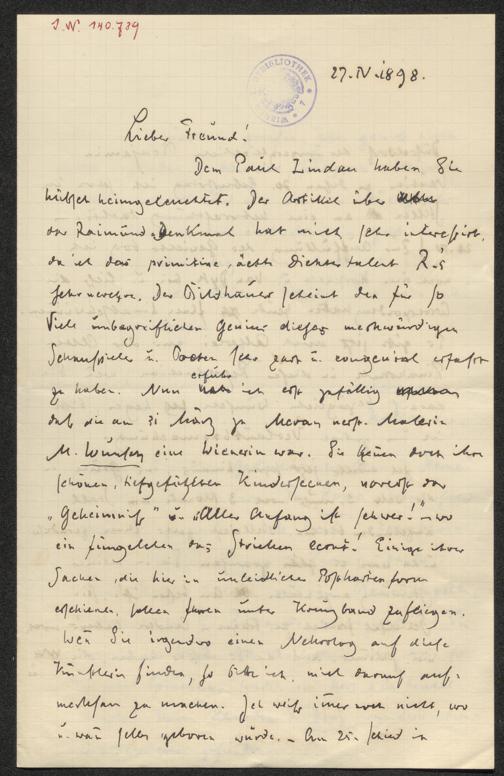 I.N. 140.739
BIBLIOTHEK
27. IV. 1898.
Lieber Freund!
Dem Paul Lindau haben Sie
hübsch heimgeleuchtet. Der Artikel über
das Raimund Denkmal hat mich sehr interessirt,
da ich das primitive, ächte Dichtertalent R.'s
sehr verehre. Der Bildhauer scheint den für so
Viele unbegreiflichen Genius dieses merkwürdigen
Schauspielers u. Poeten sehr zart u. congenial erfaßt
zu haben. Nun erfuhr ich erst zufällig
daß die am 31 März zu Meran verst. Malerin
M. Wunsch eine Wienerin war. Sie kennen doch ihre
schönen, tiefgefühlten Kinderscenen, vorerst das
„Geheimniß" u. „Aller Anfang ist schwer!" – wo
ein Jüngelchen das Stricken lernt! Einige ihrer
Sachen, die hier in unleidlicher Postkartenform
erschienen, sollen Ihnen unter Kreuzband zufliegen.
Wenn Sie irgendwo einen Nekrolog auf diese
Künstlerin finden, so bitte ich, mich darauf auf-
merksam zu machen. Ich weiß immer noch nicht, wo
u. wann selbe geboren wurde. – Am 25. schied in